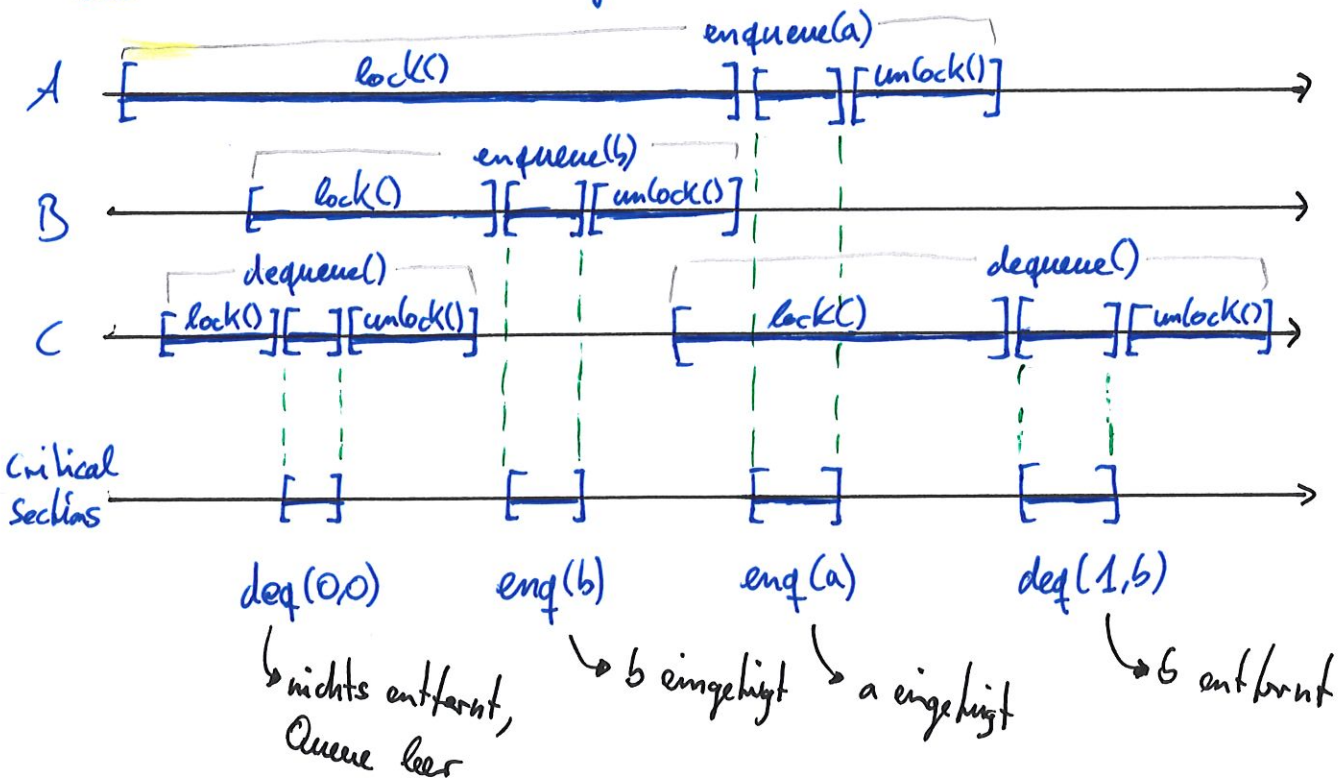 enqueue(a)
A lock() unlock()
enqueue(b)
B lock() unlock()
dequeue() dequeue()
C lock() unlock() lock() unlock()
Critical
Sections
deq(0,0) enq(b) enq(a) deq(1,b)
nichts entfernt, b eingefügt a eingefügt b entfernt
Queue leer